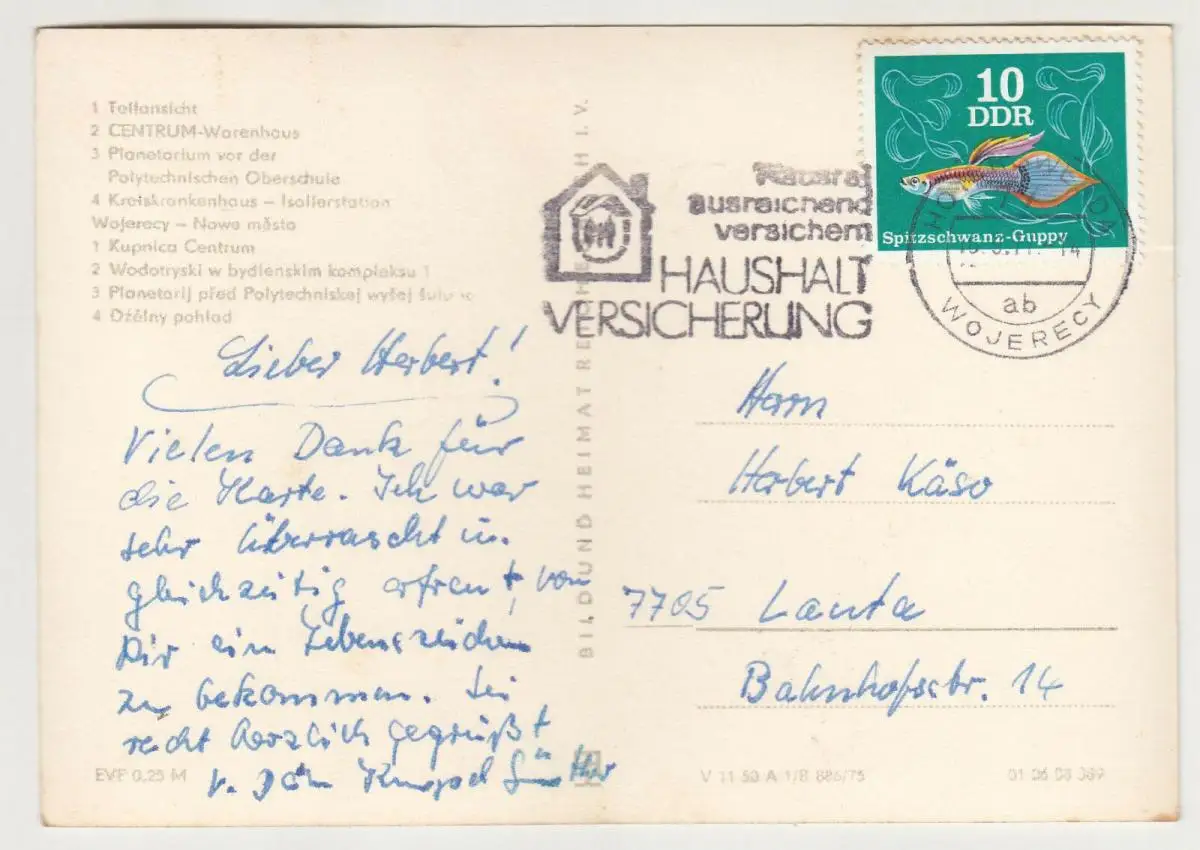 1 Teilansicht
2 CENTRUM-Warenhaus
3 Planetarium vor der
Polytechnischen Oberschule
4 Kreiskrankenhaus – Isolierstation
Wojerecy – Nowe město
1 Kupnica Centrum
2 Wodotryski w bydlenskim kompleksu 1
3 Planetarij před Polytechniskej wyšej šulu
4 Dźělny pohlad
Lieber Herbert!
Vielen Dank für
die Karte. Ich war
sehr überrascht u.
gleichzeitig erfreut, von
Dir ein Lebenszeichen
zu bekommen. Sei
recht herzlich gegrüßt
v. Günther
EVP 0,25 M
BILD UND HEIMAT REICHENBACH I. V.
Hausrat
ausreichend
versichern
HAUSHALT
VERSICHERUNG
10
DDR
Spitzschwanz-Guppy
14
ab
WOJERECY
Herrn
Herbert Käso
7705 Lauta
Bahnhofstr. 14
V 11 50 A 1/B 886/75
01 06 08 389